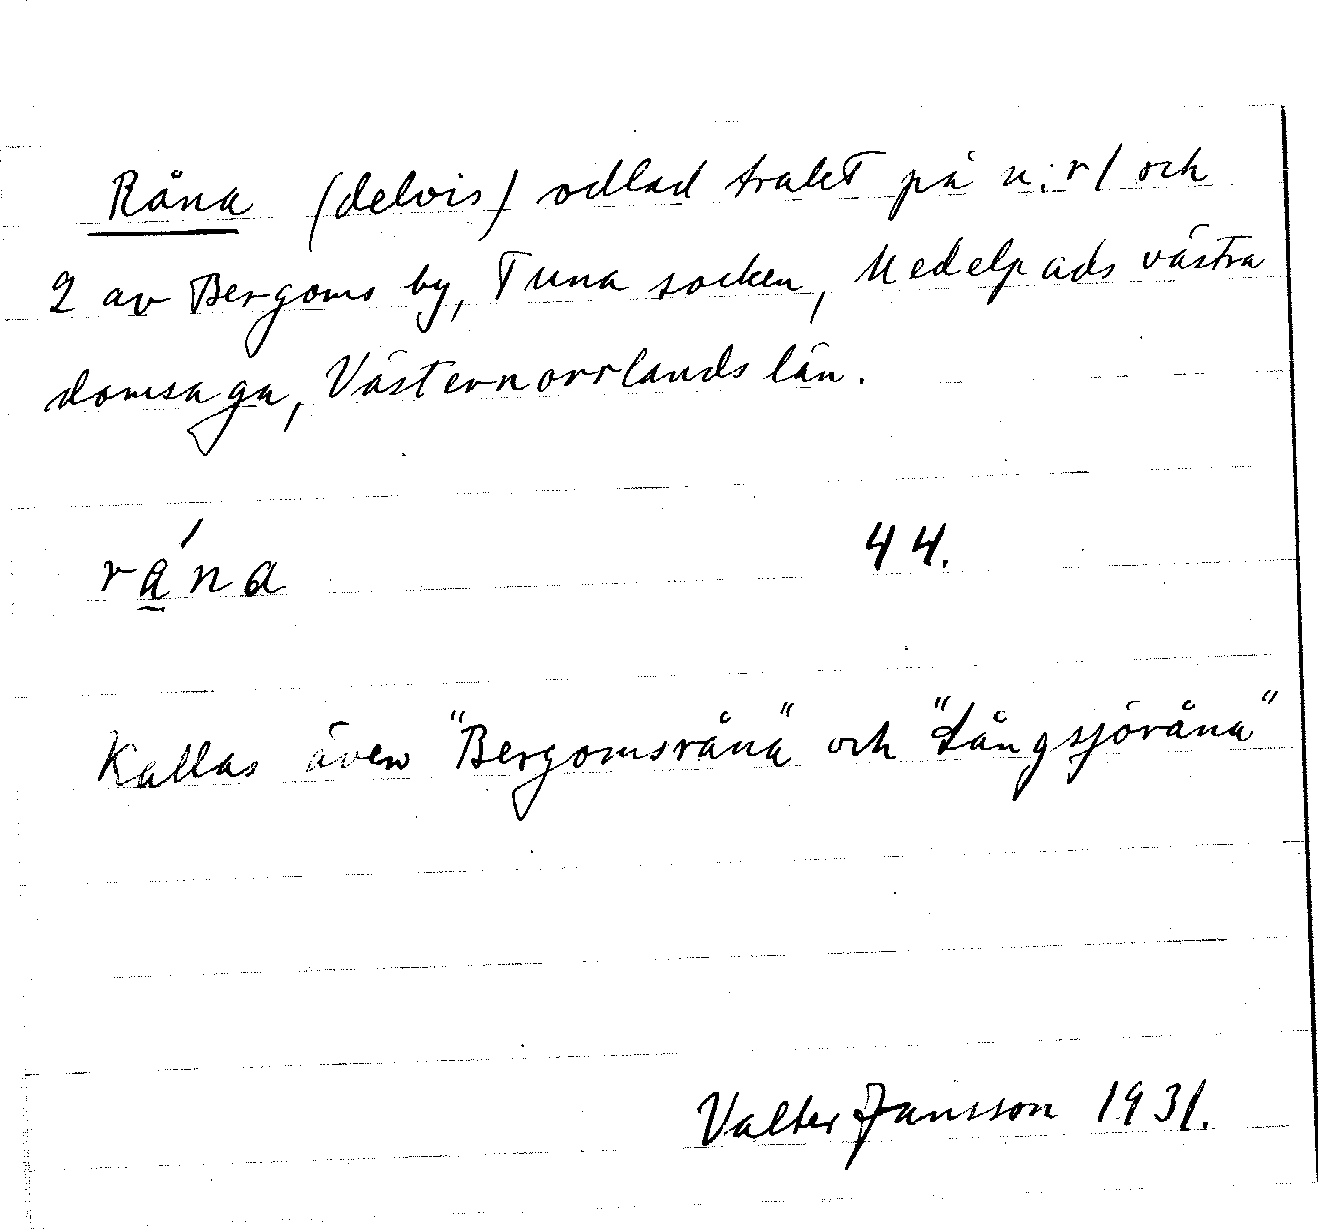 Råna (delvis) odlad trakt på n:r 1 och
2 av Bergoms by, Tuna socken, Medelpads västra
domsaga, Västernorrlands län.
rána 44.
Kallas även "Bergomsråna" och "Långsjöråna"
Valter Jansson 1931.